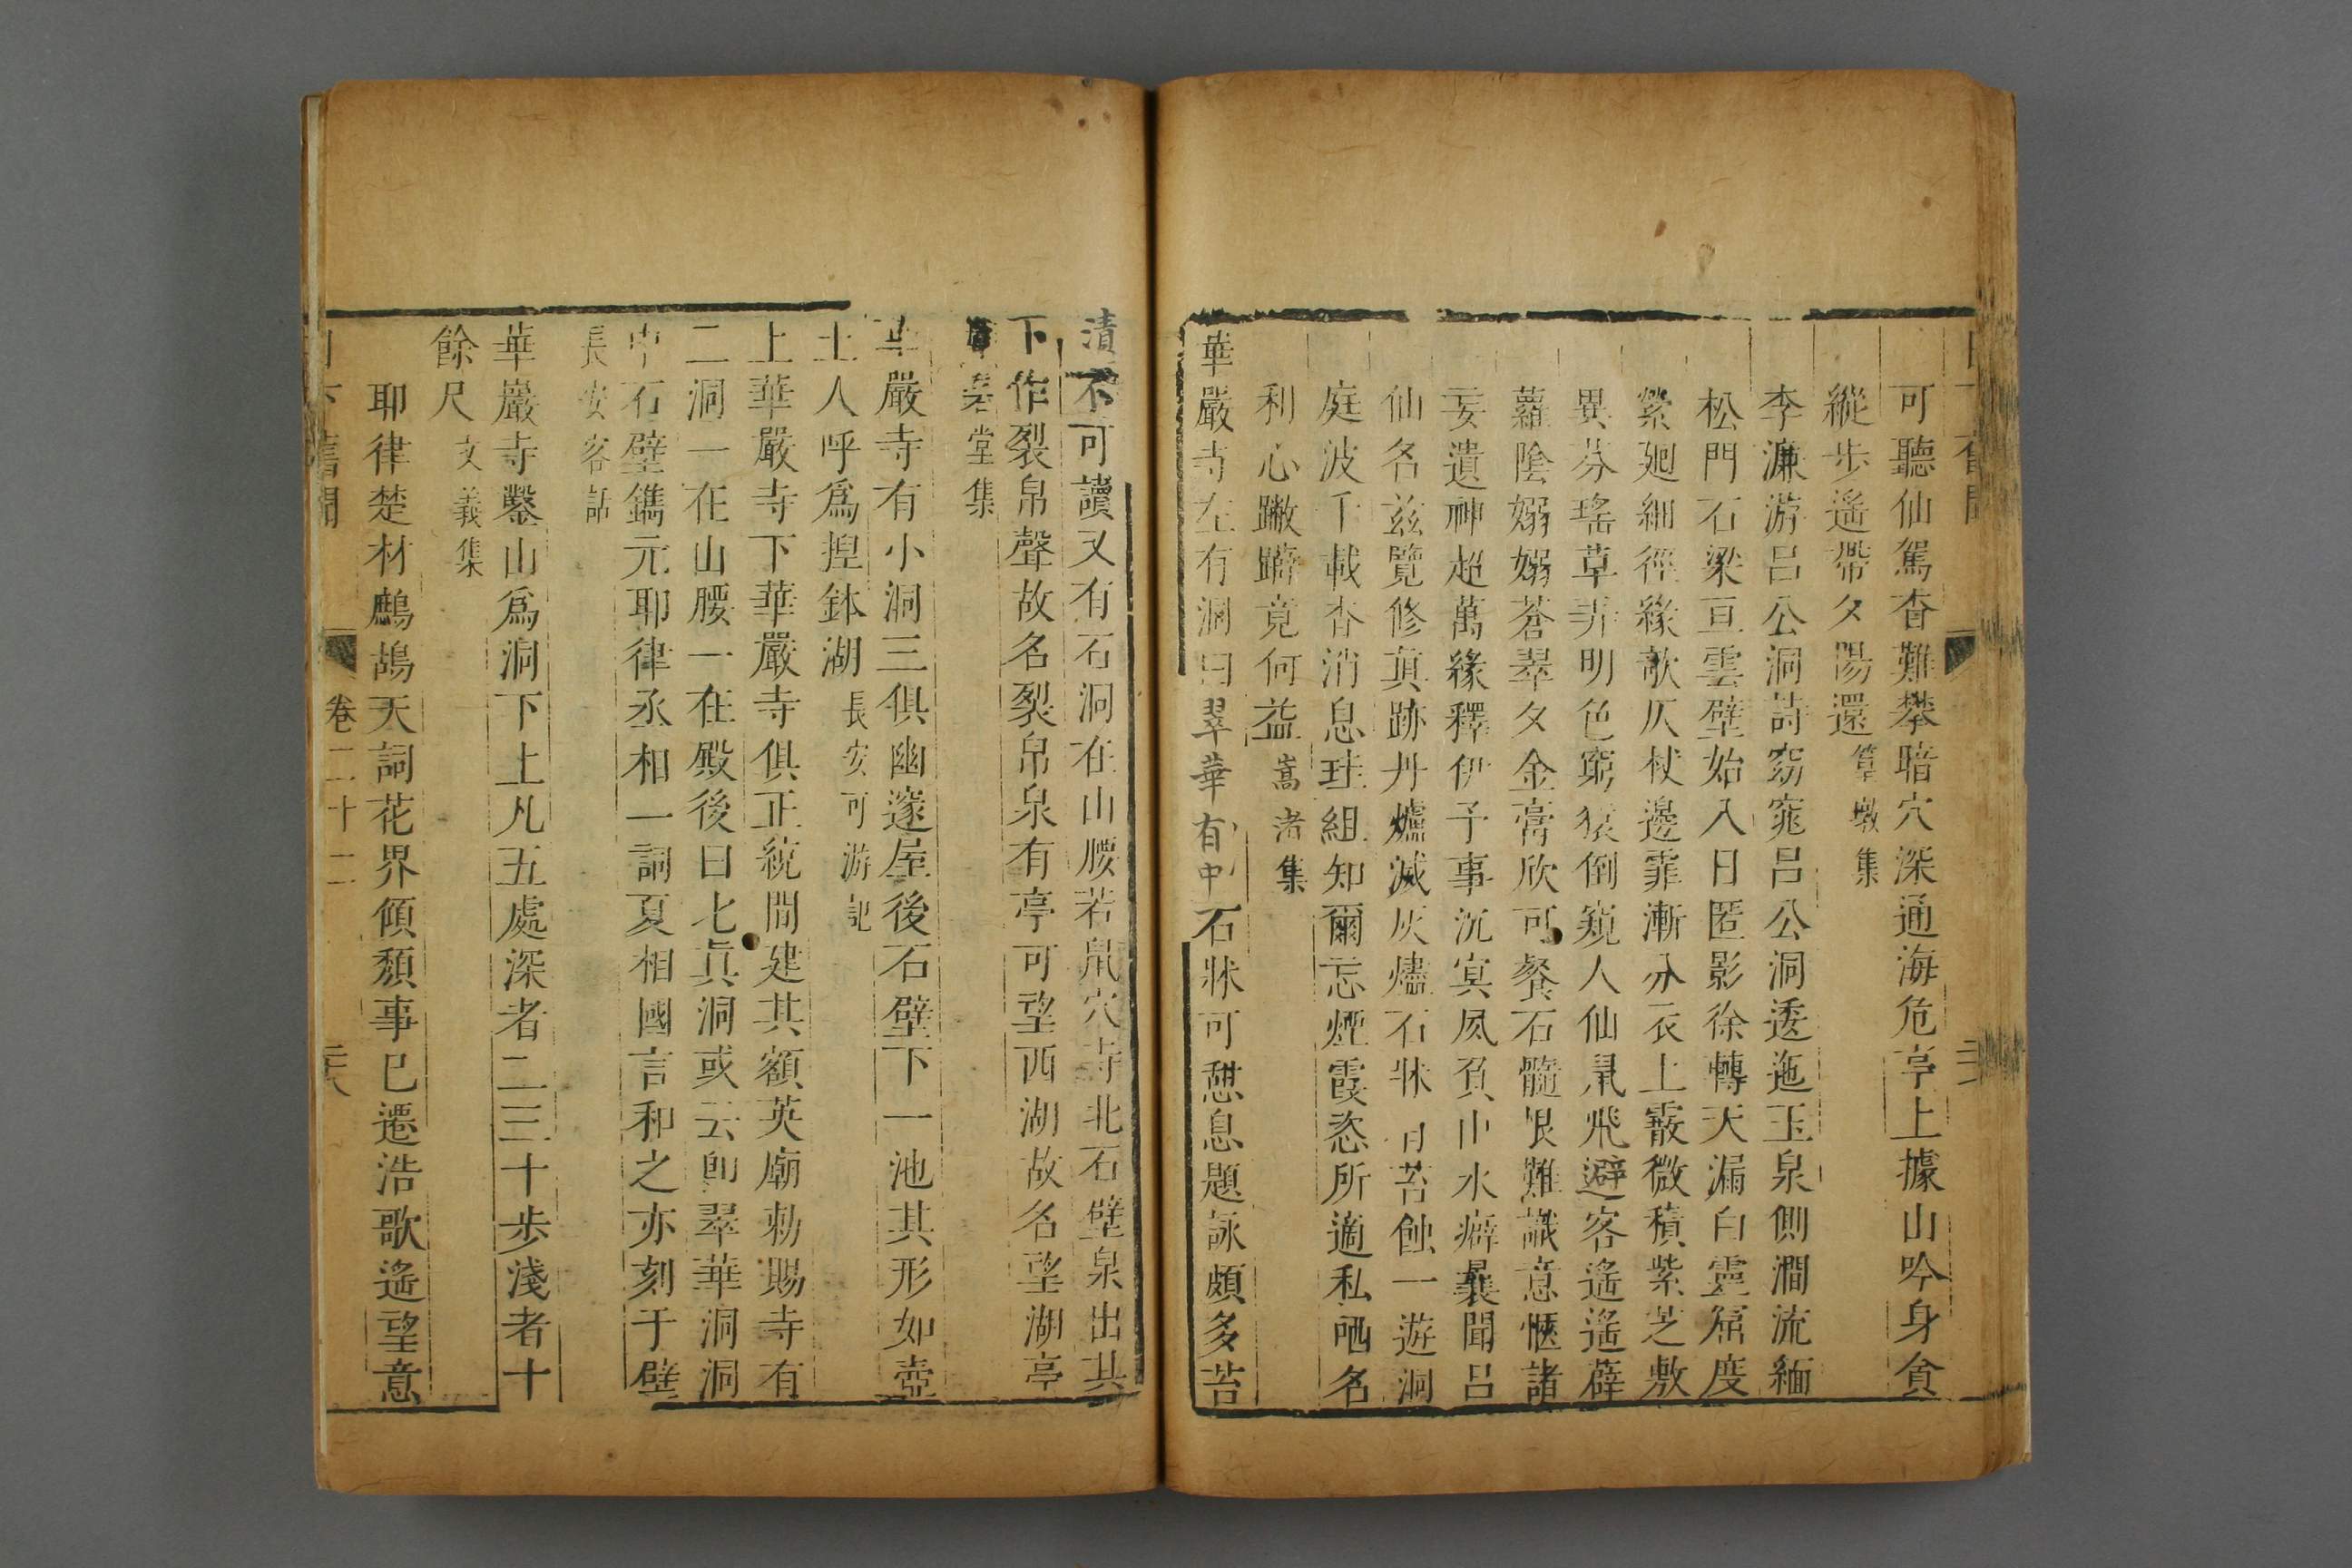 日下舊聞
可聽仙駕杳難攀暗穴深通海危亭上據山吟身貪
縱步遙帶夕陽還篁墩集
李濂游呂公洞詩窈窕呂公洞逶迤玉泉側澗流緬
松門石梁亘雲壁始入日匿影徐轉天漏白靈窟度
縈廻細徑緣欹仄杖邊霏漸分衣上霰微積紫芝敷
異芬瑤草弄明色窮猿倒窺人仙鼠飛避客遙遙薜
蘿陰嫋嫋蒼翠夕金膏欣可餐石髓恨難識意愜諸
妄遺神超萬緣釋伊子事沉寞夙負山水癖曩聞呂
仙名兹覽修真跡丹爐滅灰燼石牀苔蝕一遊洞
庭波千載杳消息珪組知爾忘煙霞恣所適私哂名
利心蹩躠竟何益嵩渚集
華嚴寺左有洞曰翠華有中石牀可憩息題詠頗多苔
漬不可讀又有石洞在山腰若鼠穴寺北石壁泉出其
下作裂帛聲故名裂帛泉有亭可望西湖故名望湖亭
堂集
華嚴寺有小洞三俱幽邃屋後石壁下一池其形如壺
土人呼爲揑鉢湖長安可游記
上華嚴寺下華嚴寺俱正統間建其額英廟勅賜寺有
二洞一在山腰一在殿後曰七眞洞或云卽翠華洞洞
中石壁鐫元耶律丞相一詞夏相國言和之亦刻于壁
長安客話
華嚴寺鑿山爲洞下上凡五處深者二三十步淺者十
餘尺文義集
耶律楚材鷓鴣天詞花界傾頹事已遷浩歌遙望意
日下舊聞 卷二十二